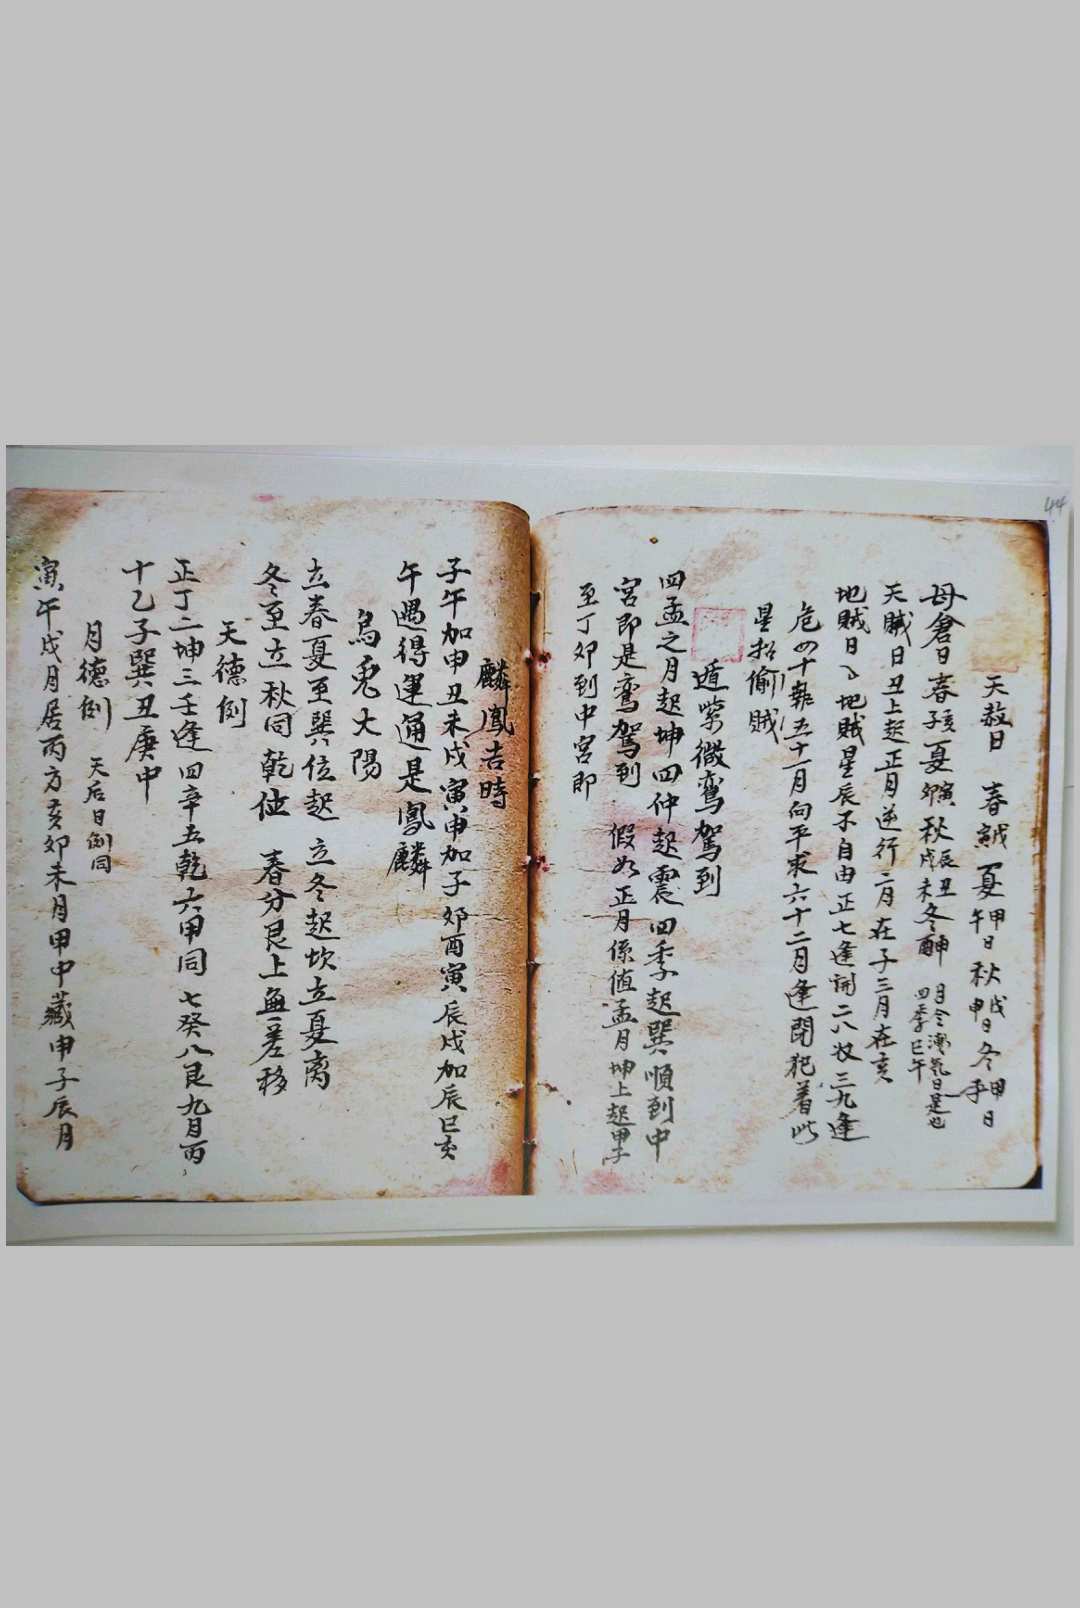 44
天赦日 春戊寅 夏甲午日 秋戊申日 冬甲子日
母倉日春亥子夏寅卯秋辰丑戌未冬申酉 月令濁氣日是也 四季巳午
天賊日丑上起正月逆行二月在子三月在亥
地賊日 地賊星辰不自由正七逢開二八收三九逢
危四十執五十一月向平求六十二月逢閉犯着此
星招偷賊
遁紫微鸞駕到
四孟之月起坤四仲起震四季起巽順到中
宮即是鸞駕到 假如正月係值孟月坤上起甲子
至丁卯到中宮即
麟鳳吉時
子午加申丑未戌寅申加子卯酉寅辰戌加辰巳亥
午遇得運通是鳳麟
烏兎大陽
立春夏至巽位起 立冬起坎立夏离
冬至立秋同乾位 春分艮上無差移
天德例
正丁二坤三壬逢四辛五乾六甲同七癸八艮九月丙
十乙子巽丑庚中
月德例 天后日例同
寅午戌月居丙方亥卯未月甲中藏申子辰月